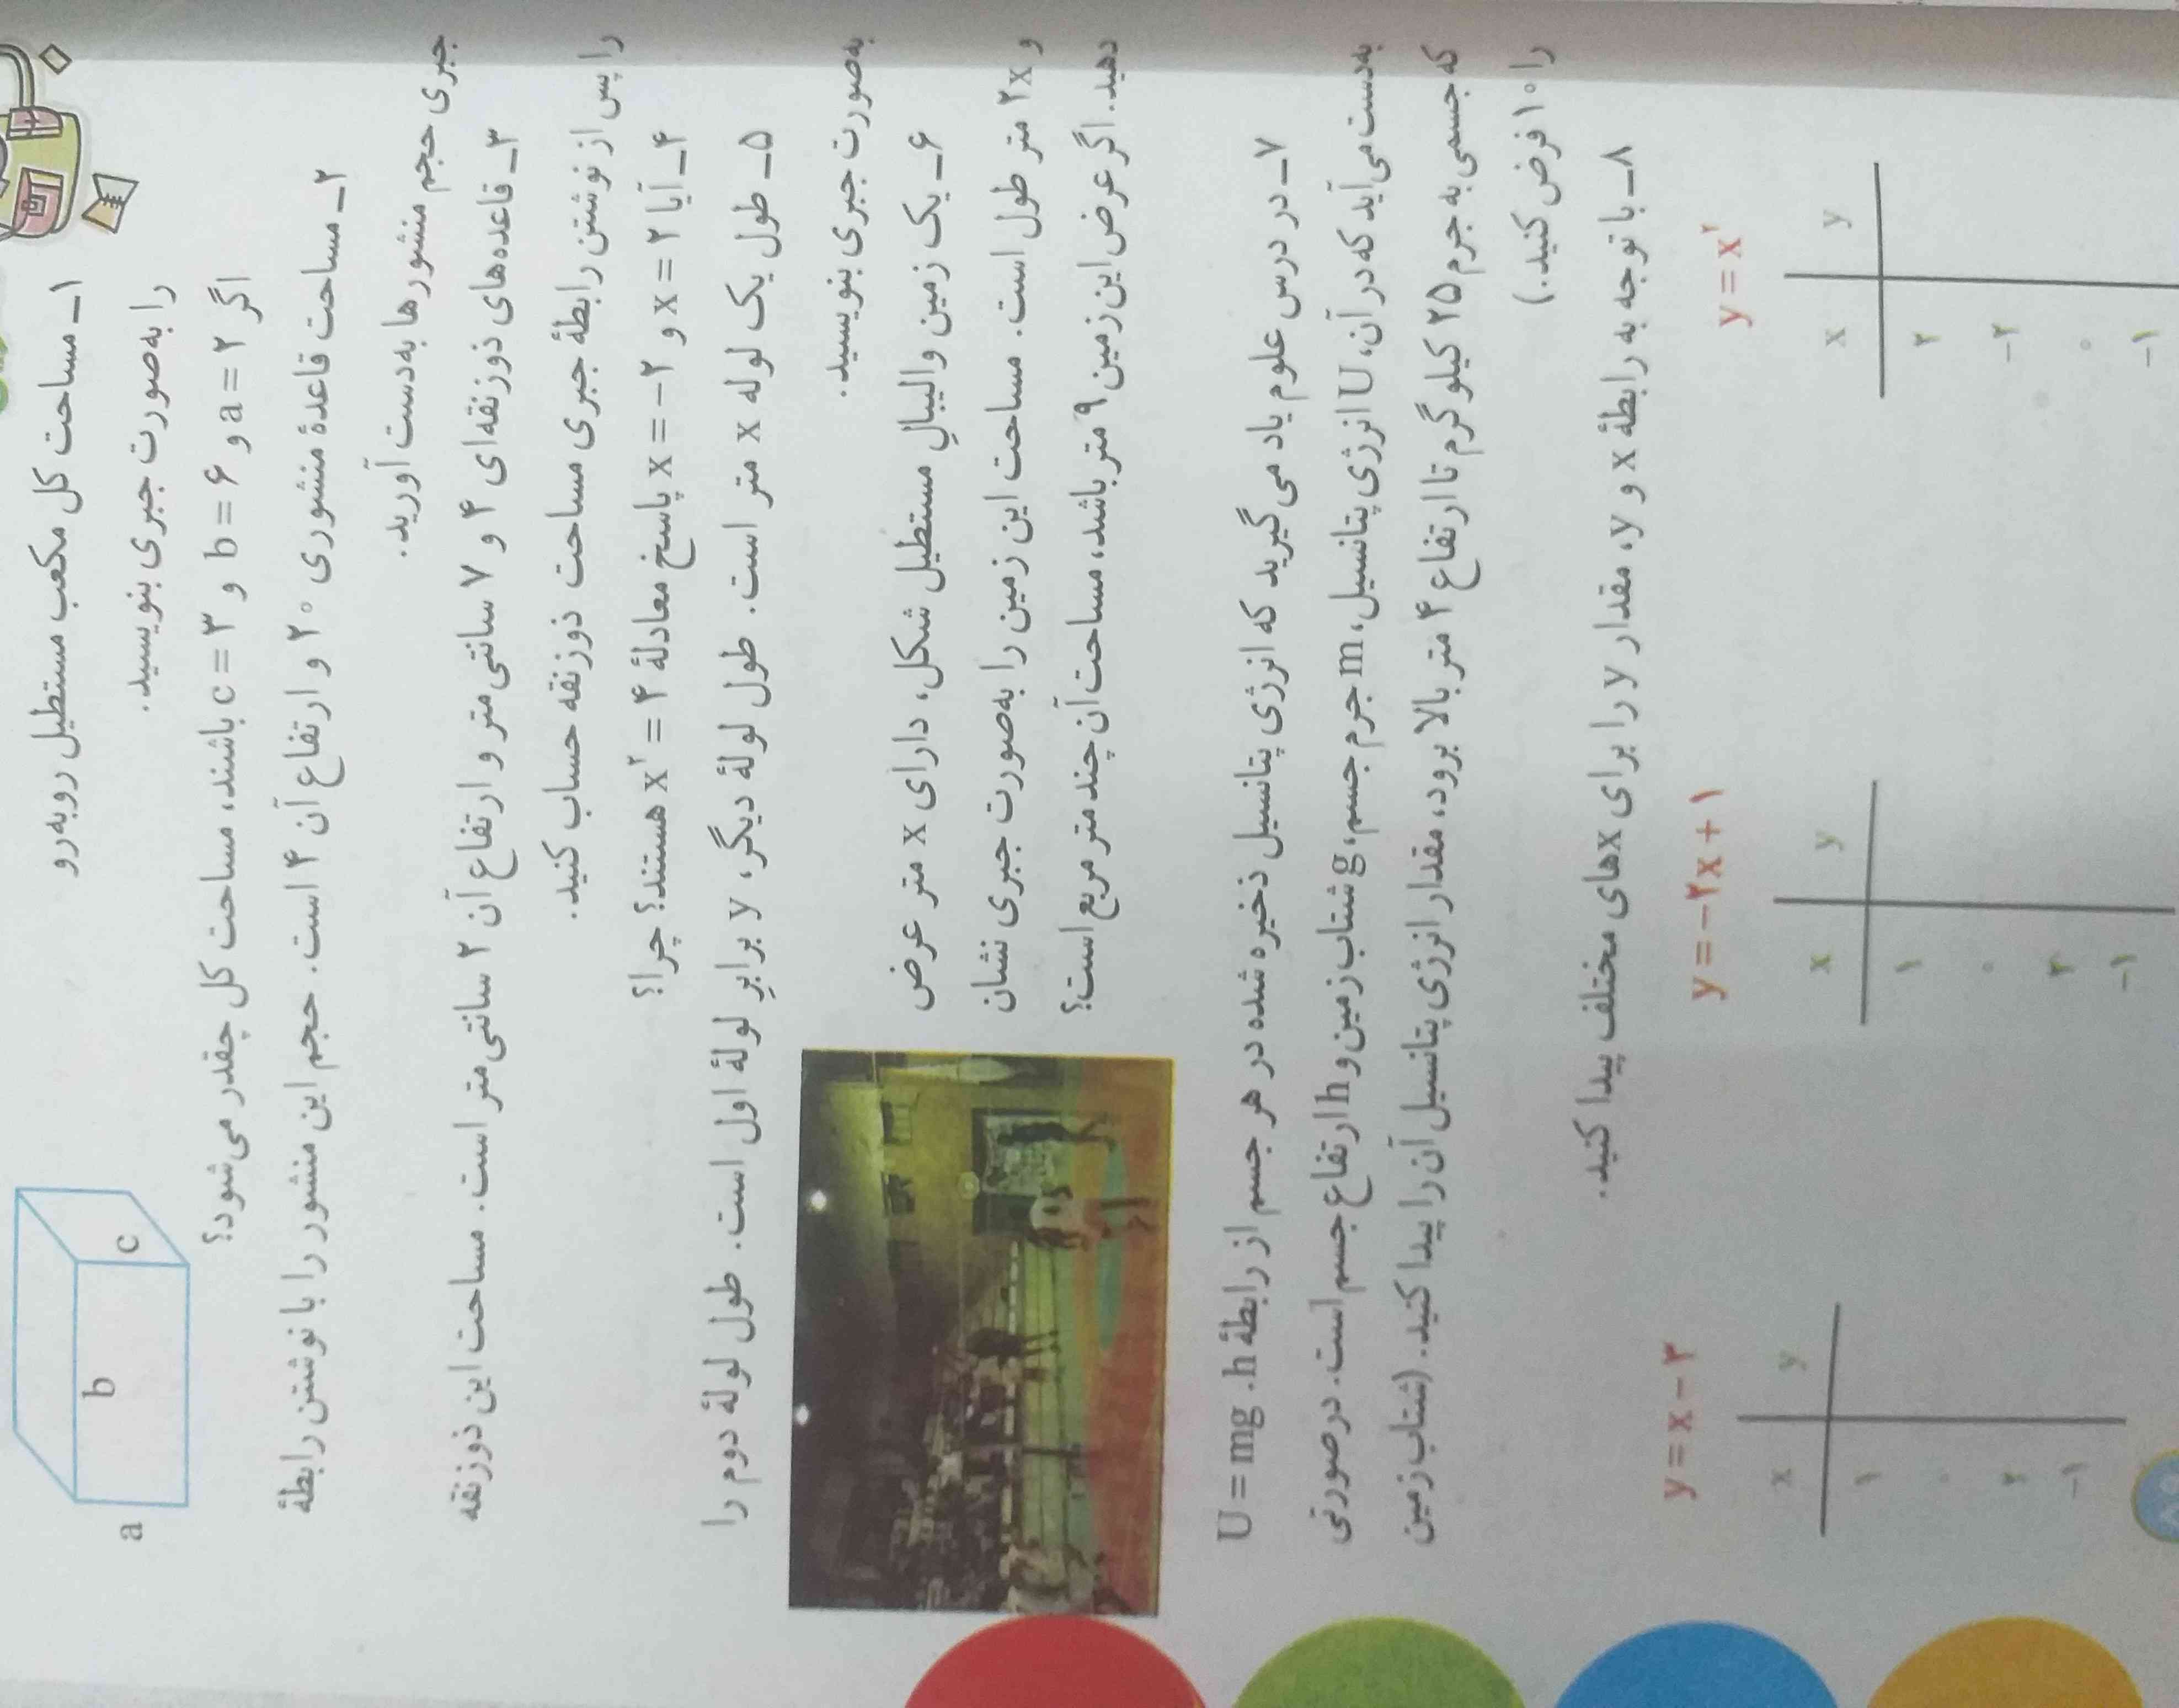 ۱ــ مساحت کل مکعب مستطیل روبه‌رو
را به‌صورت جبری بنویسید.
a
b
c
اگر a = ۲ و b = ۶ و c = ۳ باشند، مساحت کل چقدر می‌شود؟
۲ــ مساحت قاعدهٔ منشوری ۲۰ و ارتفاع آن ۴ است. حجم این منشور را با نوشتن رابطهٔ
جبری حجم منشورها به‌دست آورید.
۳ــ قاعده‌های ذوزنقه‌ای ۴ و ۷ سانتی‌متر و ارتفاع آن ۲ سانتی‌متر است. مساحت این ذوزنقه
را پس از نوشتن رابطهٔ جبری مساحت ذوزنقه حساب کنید.
۴ــ آیا x = ۲ و x = −۲ پاسخ معادلهٔ x۲ = ۴ هستند؟ چرا؟
۵ــ طول یک لوله x متر است. طول لولهٔ دیگر، y برابرِ لولهٔ اول است. طول لولهٔ دوم را
به‌صورت جبری بنویسید.
۶ــ یک زمین والیبالِ مستطیل شکل، دارای x متر عرض
و ۲x متر طول است. مساحت این زمین را به‌صورت جبری نشان
دهید. اگر عرض این زمین ۹ متر باشد، مساحت آن چند متر مربع است؟
۷ــ در درس علوم یاد می‌گیرید که انرژی پتانسیل ذخیره شده در هر جسم از رابطهٔ U = mg .h
به‌دست می‌آید که در آن، U انرژی پتانسیل، m جرم جسم، g شتاب زمین و h ارتفاع جسم است. درصورتی
که جسمی به جرم ۲۵ کیلوگرم تا ارتفاع ۴ متر بالا برود، مقدار انرژی پتانسیل آن را پیدا کنید. (شتاب زمین
را ۱۰ فرض کنید.)
۸ــ با توجه به رابطهٔ x و y، مقدار y را برای xهای مختلف پیدا کنید.
y = x − ۲
x y
۱
۰
۲
−۱
y = −۲x + ۱
x y
۱
۰
۳
−۱
y = x۲
x y
۲
−۲
۰
−۱